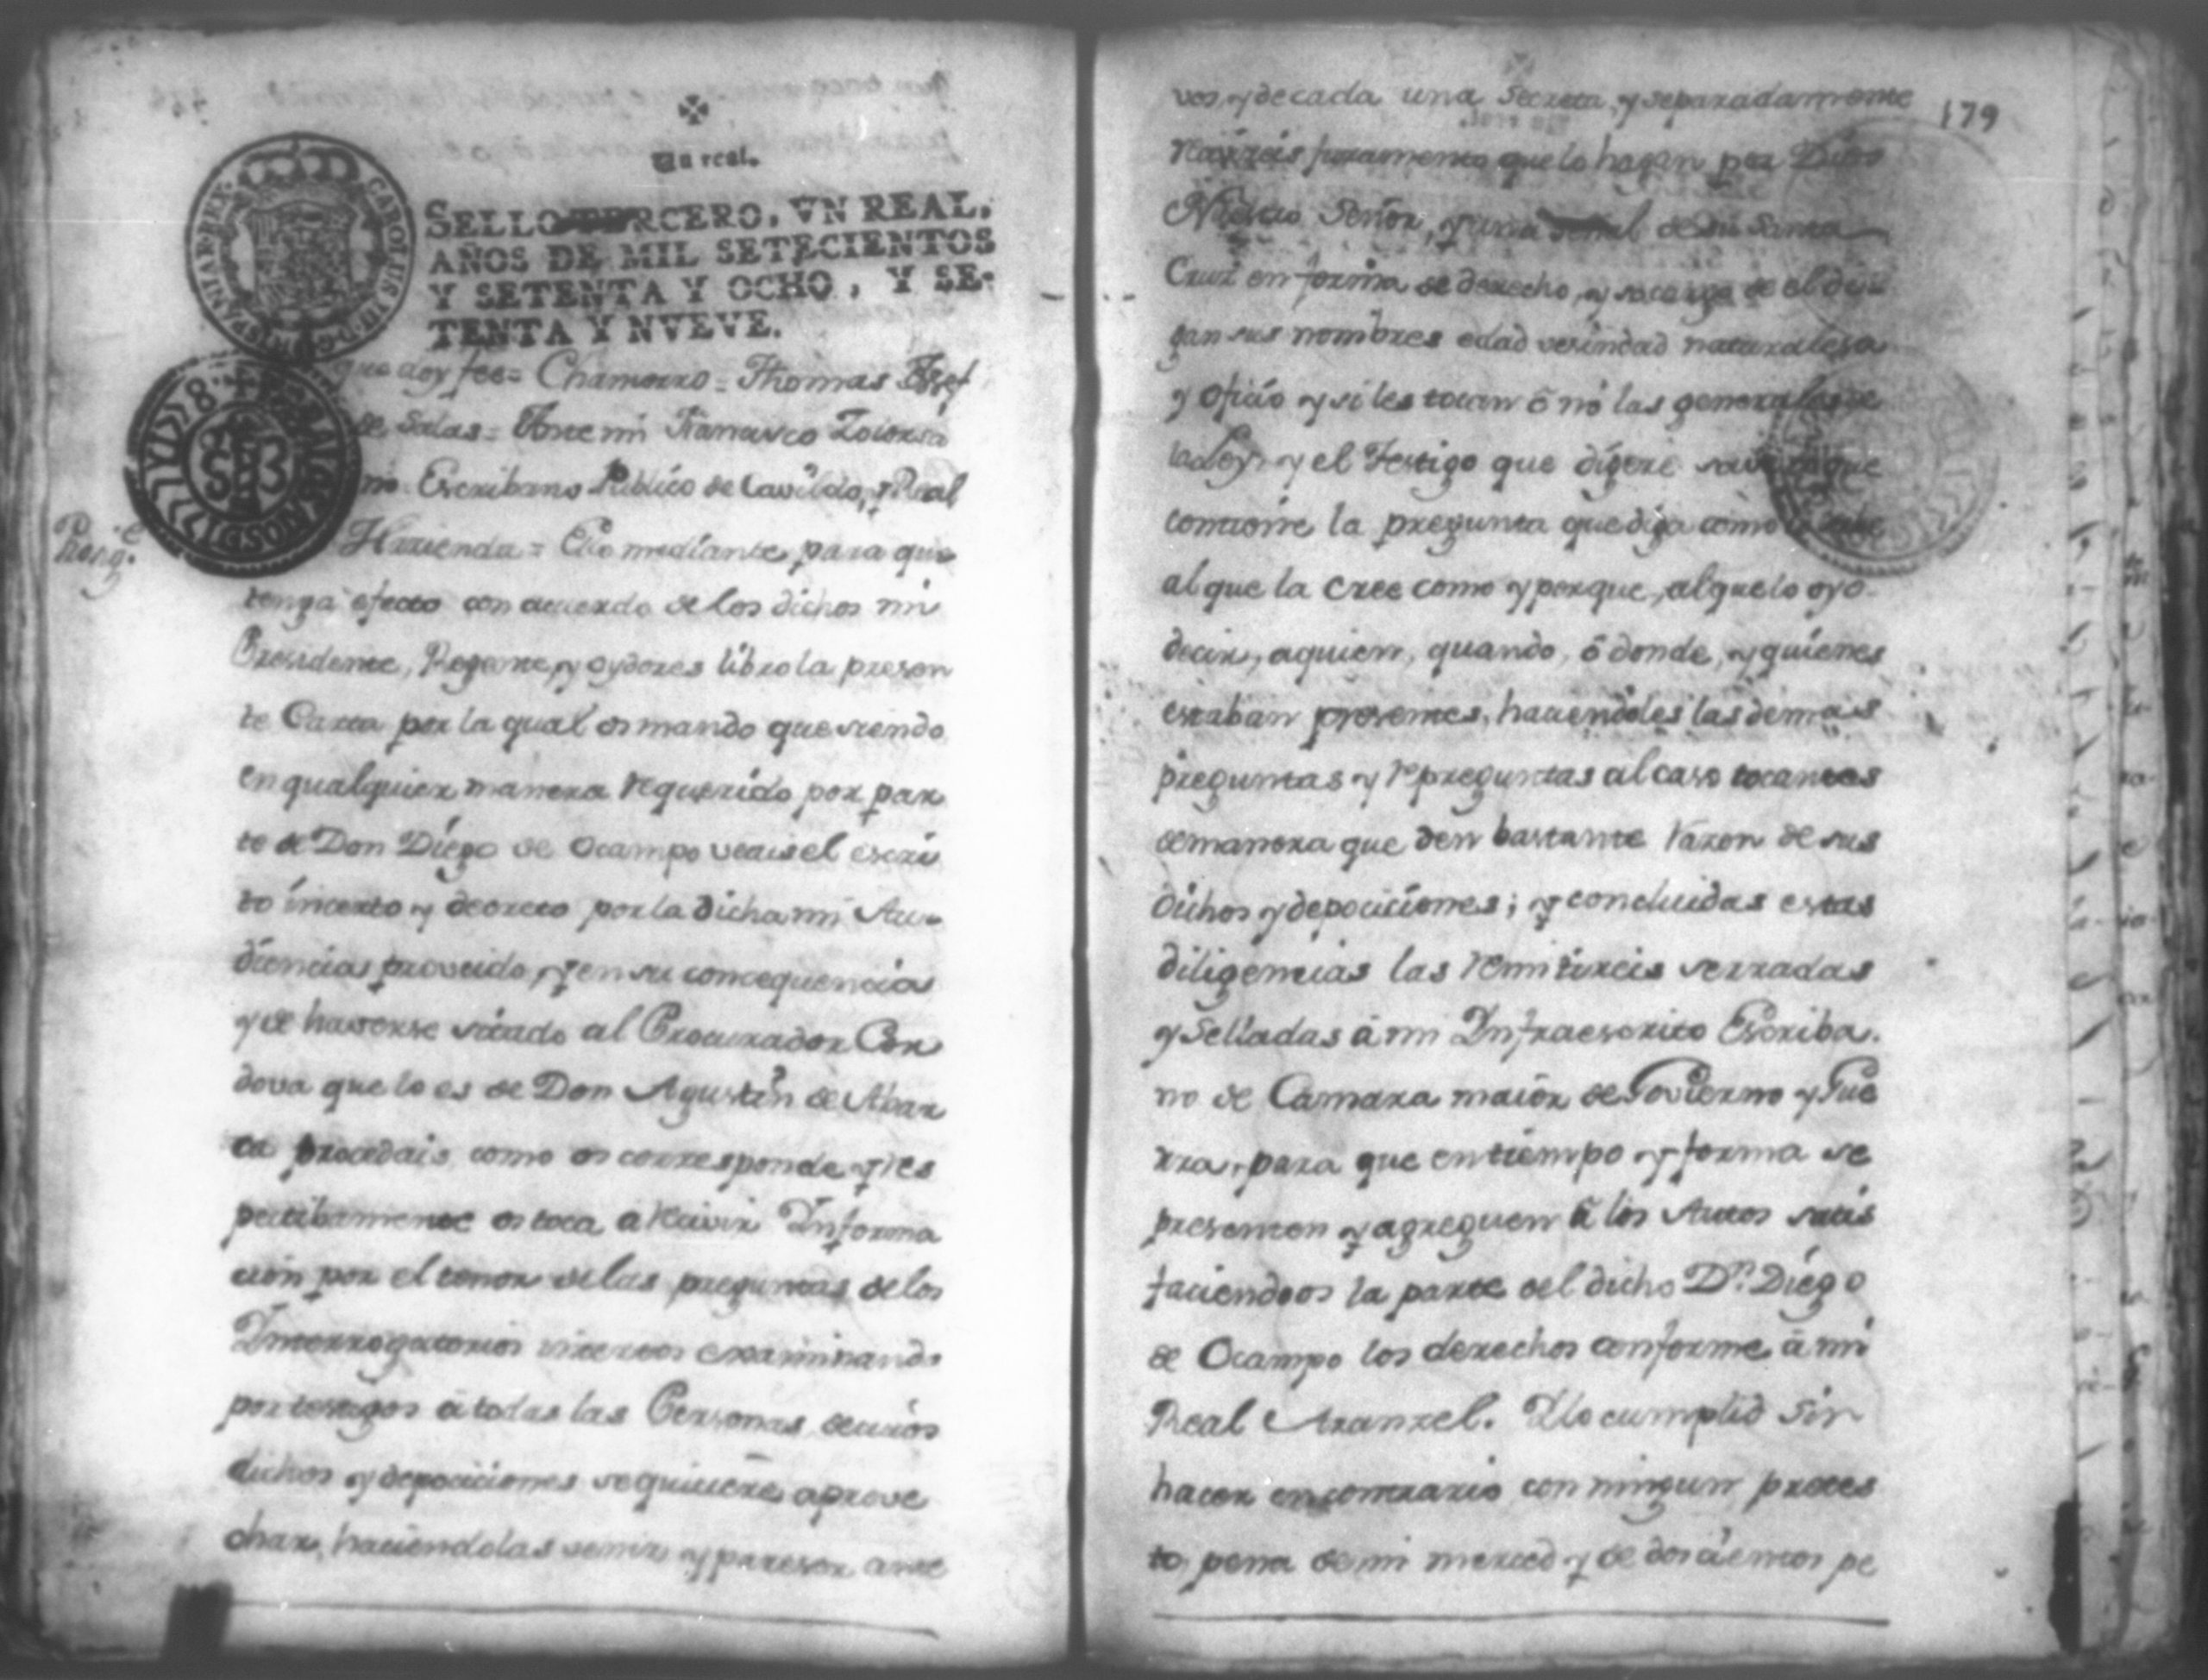 Un real.
SELLO TERCERO, VN REAL,
AÑOS DE MIL SETECIENTOS
Y SETENTA Y OCHO, Y SE-
TENTA Y NVEVE.
CAROLUS III D G HISPANIAR REX
que doy fee = Chamorro = Thomas Josef
de Salas = Ante mi Francisco
no Escribano Publico de Cavildo, y Real
Hazienda = Con mediante, para que
tenga efecto con acuerdo de los dichos mi
Presidente, Regente, y oydores libro la presen
te Carta por la qual os mando que siendo
en qualquier manera requerido por par
te de Don Diego de Ocampo veais el escri
to incerto y decreto por la dicha mi Au-
diencias proveido, y en su concequencia
y de haverse citado al Procurador Cor
dova que lo es de Don Agustin de Abar
ca procedais como os corresponde y res
pectibamente os toca a recivir Informa
cion por el tenor de las preguntas de los
Interrogatorios incertos examinando
por testigos á todas las Personas de cuios
dichos y depociciones se quiciere aprove
char, haciendolas venir y pareser ante
179
vos, y de cada una Secreta, y separadamente
recivireis juramento que lo hagan por Dios
Nuestro Señor, y una señal de su Santa
Cruz en forma de derecho, y so cargo de el di
gan sus nombres edad vesindad naturalesa
y oficio y si les tocan ó nó las generales de
la Ley, y el Testigo que digere save lo que
contiene la pregunta que diga como lo sabe
al que la cree como y porque, al que lo oyo
decir, aquien, quando, ó donde, y quienes
estaban presentes, haciendoles las demas
preguntas y repreguntas al caso tocantes
de manera que den bastante rázon de sus
dichos y depociciones; y concluidas estas
diligencias las remitireis serradas
y Selladas á mi Infraescrito Escriba.
no de Camara maior de Govierno y Gue
rra, para que en tiempo y forma se
presenten y agreguen á los Autos satis
faciendoos la parte del dicho Dn. Diego
de Ocampo los derechos conforme á mi
Real Aranzel. Y lo cumplid Sin
hacer en contrario con ningun pretes
to, pena de mi merced y de dos cientos pe